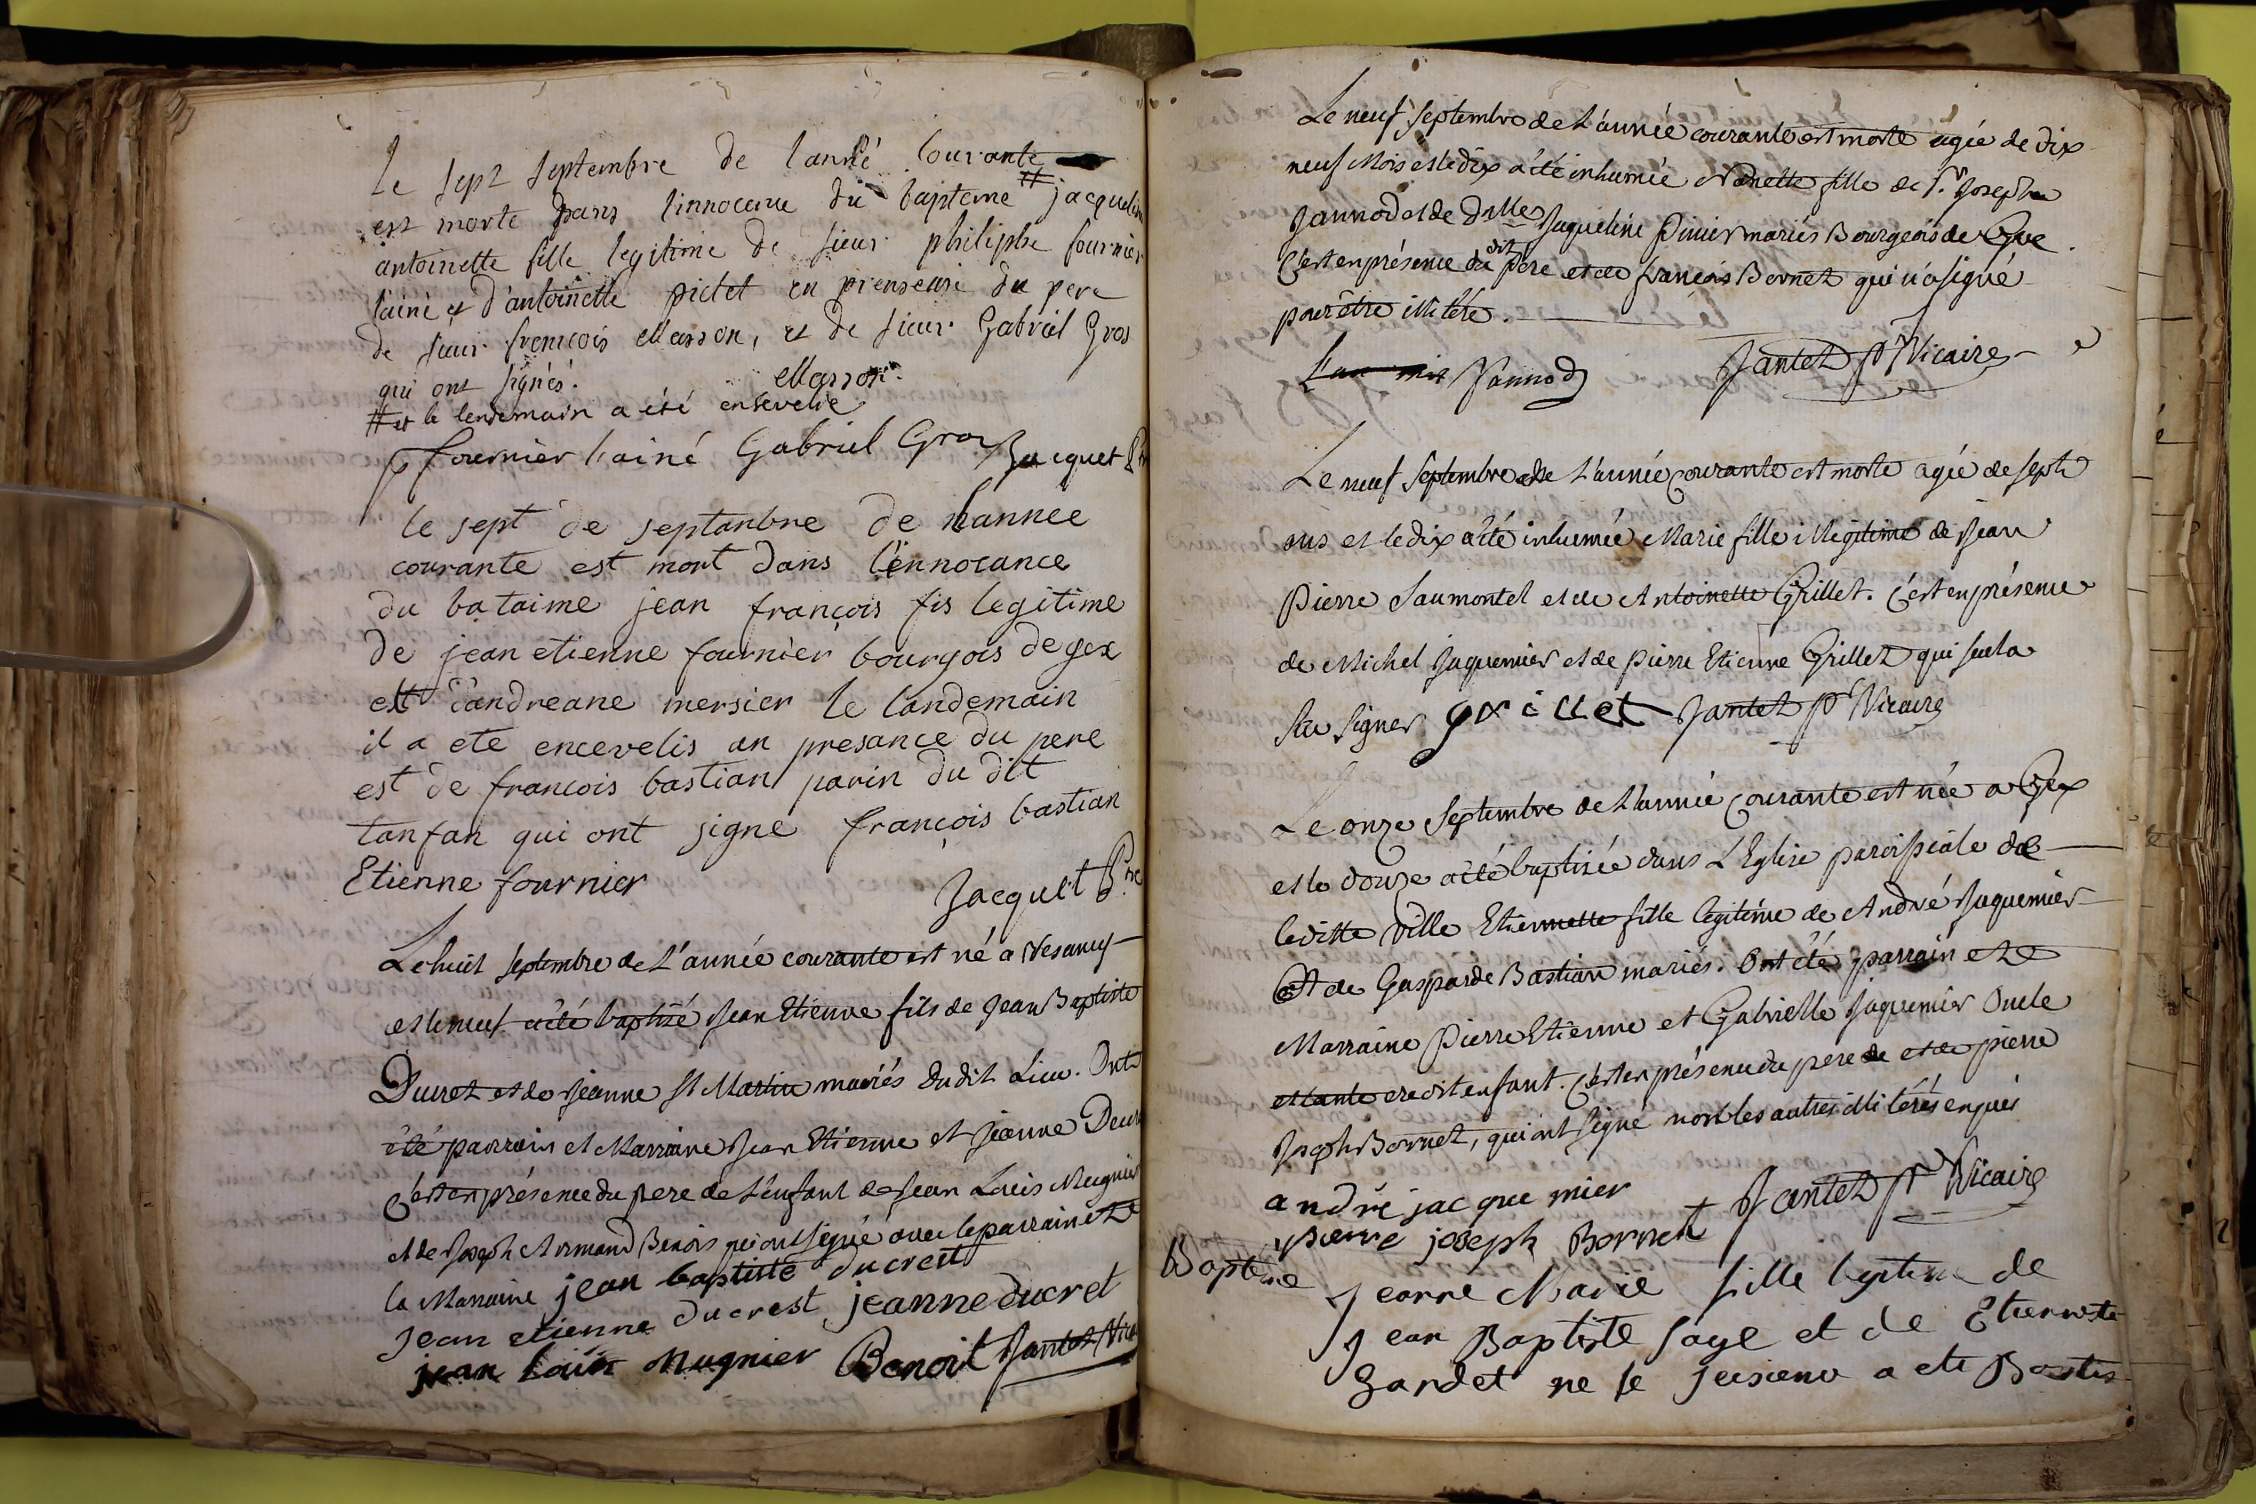 le sept septembre de lanné courante
est morte dans linnocence du bapteme # jacqueline
antoinette fille legitime de sieur philiphe fournier
lainé et d'antoinette pictet en presence du pere
de sieur francois Masson, et de sieur Gabriel Gros
qui ont signés. Masson
# et le lendemain a été ensevelie
fournier lainé Gabriel Gros Jacquet
le sept de septanbre de lannee
courante est mort dans l'innocance
du bataime jean françois fis legitime
de jean etienne fournier bourgois de gex
est dandreane mersier le landemain
il a ete encevelis an presance du pere
est de francois bastian parin du dit
tanfan qui ont signe françois bastian
Etienne fournier Jacquet Ptre
Le huit Septembre de L'année courante est né a Vesancy
et le neuf a été baptisé Jean Etienne fils de Jean Baptiste
Ducret et de Jeanne St Martin mariés dudit Lieu. Ont
été parrain et Marraine Jean Etienne et Jeanne Ducret
C'est en présence du pere de L'enfant de Jean Louis Mugnier
et de Joseph Armand Benois qui ont signé avec le parrain et
la Marraine jean baptiste ducrest
jean etienne ducrest jeanne ducret
jean Louis Mugnier Benoit Jantet Vicaire
Le neuf Septembre de L'année courante est morte agée de dix
neuf Mois et le dix a été inhumée Nanette fille de Sr. Joseph
Jannod et de Dlle Jaqueline Pinier mariés Bourgeois de Gex.
C'est en présence du dit Père et de francois Bornet qui n'a signé
pour être illitéré.
Jannod Jantet p. Vicaire
Le neuf Septembre de L'année Courante est morte agée de sept
ans et le dix a été inhumée Marie fille illégitime de Jean
Pierre Saumontel et de Antoinette Grillet. C'est en présence
de Michel Jaquemier et de Pierre Etienne Grillet qui seul a
su signer grillet Jantet p. Vicaire
Le onze Septembre de L'année Courante est née a Gex
et le douze a été baptisée dans L'Eglise paroissiale de
la ditte Ville Etiennette fille légitime de André Jaquemier
et de Gasparde Bastian mariés. Ont été parrain et
Marraine Pierre Etienne et Gabrielle Jaquemier Oncle
et tante du dit enfant. C'est en présence du pere et de pierre
Joseph Bornet, qui ont signé non les autres illitérés enquis
andré jac que mier Jantet p. Vicaire
pierre joseph Bornet
Bapteme
Jeanne Marie fille legitime de
Jean Baptiste Saye et de Etiennette
Gardet ne le
a ete Baptis